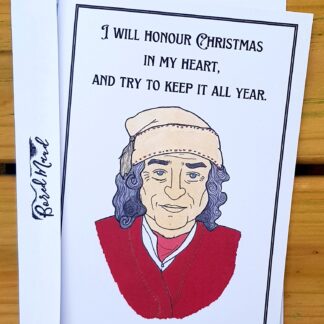 I WILL HONOUR CHRISTMAS
IN MY HEART,
AND TRY TO KEEP IT ALL YEAR.
Bard Nerd